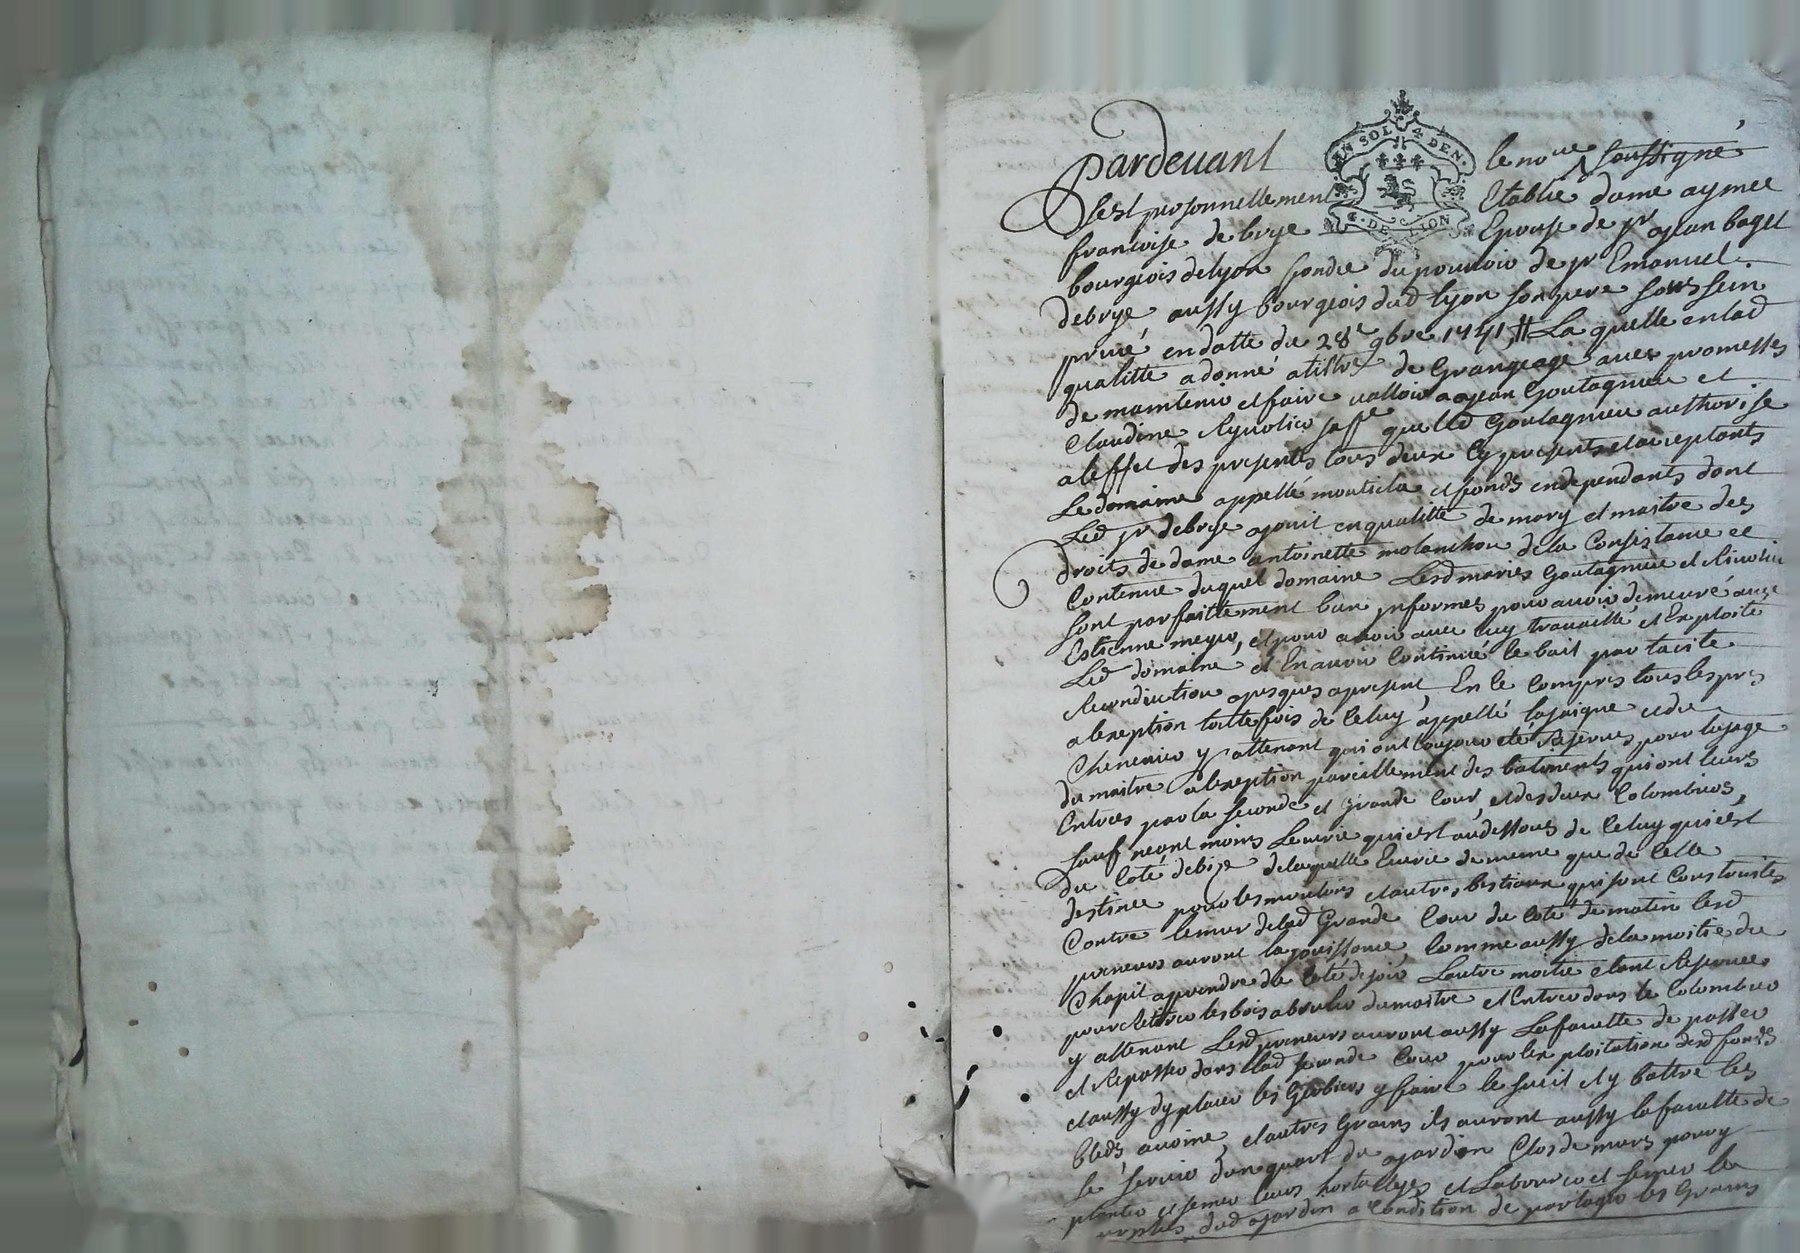 UN SOL 4 DEN.
G. DE LION
pardevant le no.re soussigné
s'est personnellement Etablie dame aymée
francoise de brye Epouse de sr jean baget
bourgeois de lyon fondée du pouvoir de sr Emanuel
debrye aussy bourgeois dud lyon son pere sous sein
privé en datte du 28e 9bre 1741, La quelle en lad
qualitté a donné a tiltre de Grangeage avec promesses
de maintenir et faire valloir a jean Goutagnieu et
Claudine Rivolier sa fe quelled Goutagnieu authorise
a leffet des presentes tous deux cy presents et acceptants
Le domaine appellé et fonds endependants dont
Led sr debrye jouit en qualitté de mary et maitre des
droits de dame antoinette molanchon de la Consistance et
Contenue duquel domaine Lesd mariés Goutagnieu et Rivolier
sont parfaittement bien jnformés pour avoir demeuré avec
Estienne et pour avoir avec luy travaillé et Exploité
Led domaine et En avoir Continué le bail par tacite
Reconduction jusques a present, En ce Compris tous les prés
a lexeption touttefois de Celuy appellé et du
Chenevier y attenant qui ont toujour eté Reservés pour lusage
du maitre a lexeption pareillement des batiments qui ont leurs
Entrées par la seconde et grande Cour, et des deux Colombiers,
sauf neant moins Lecurie qui est au dessous de Celuy qui est
du Coté de bize de laquelle Ecurie de meme que de Celle
destinée pour les moutons et autres bestiaux qui sont Construittes
Contre le mur de lad Grande Cour du Coté de matin lesd
preneurs auront la jouissance, Comme aussy de la moitié du
Chapit a prendre du Coté de soir Lautre moitié etant Reservée
pour Retirer les bois du maitre et Entrer dans le Colombier
y attenant Lesd preneurs auront aussy La faculté de passer
et Repasser dans lad seconde Cour pour lex ploitation desd fonds
et aussy dy placer les Gerbiers y faire le sueil et y battre les
bleds, avoine, et autres Grains ils auront aussy la faculté de
se servir d'un quart du jardin Clos de murs pour y
planter et semer leurs hortallages et Labourer et semer le
dud jardin a Condition de partager les Grains